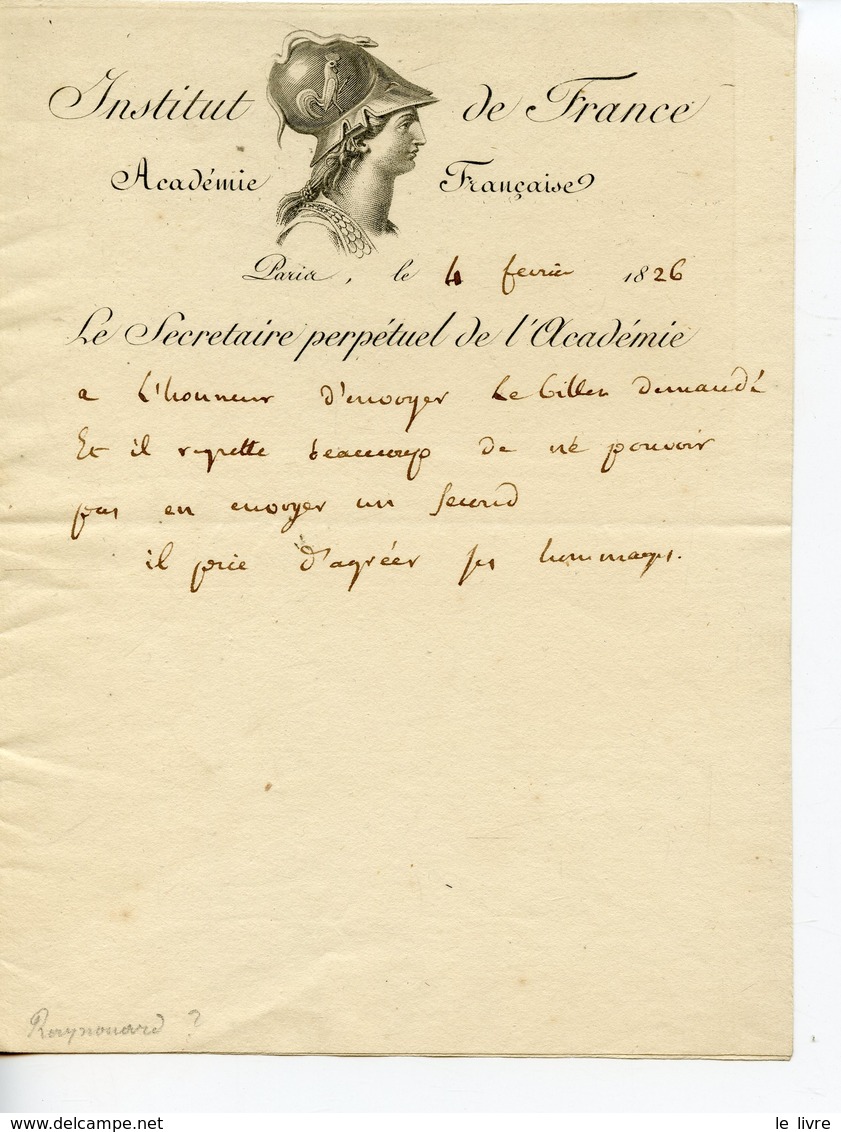 Institut de France
Académie Française
Paris, le 4 fevrier 1826
Le Secretaire perpétuel de l'Académie
a l'honneur d'envoyer le billet demandé
Et il regrette beaucoup de ne pouvoir
pas en envoyer un second
il prie d'agréer ses hommages.
Raynouard ?
le livre